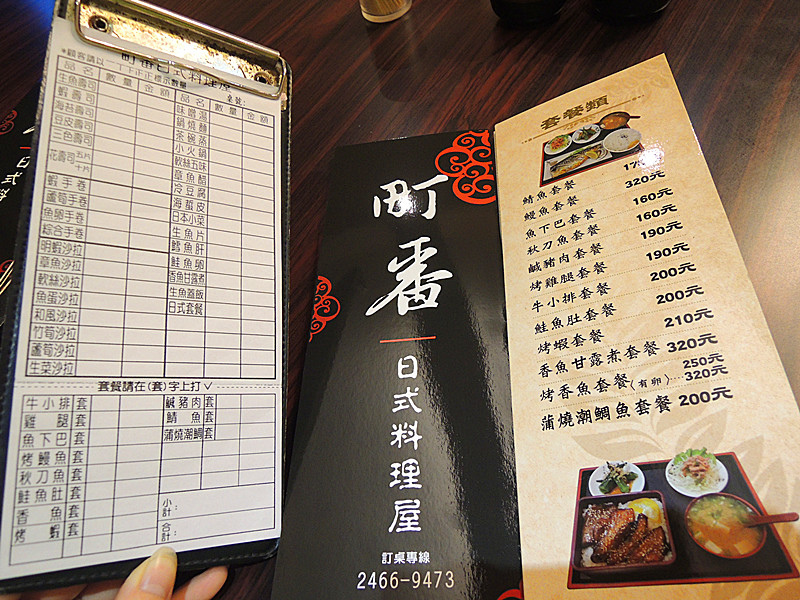 町番日式料理屋
*顧客請以一丁下正正標示數量
桌號:
品名 數量 金額 品名 數量 金額
生魚壽司
蝦壽司
海苔壽司
豆皮壽司
三色壽司
花壽司 五片 十片
蝦手卷
蘆筍手卷
魚卵手卷
綜合手卷
明蝦沙拉
章魚沙拉
軟絲沙拉
魚蛋沙拉
和風沙拉
竹筍沙拉
蘆筍沙拉
生菜沙拉
味噌湯
鍋燒麵
茶碗蒸
小火鍋
軟絲五味
章魚醋
冷豆腐
海蜇皮
日本小菜
生魚片
鱈魚肝
鮭魚卵
香魚甘露煮
生魚蓋飯
日式套餐
套餐請在(套)字上打V
牛小排 套
雞腿 套
魚下巴 套
烤鰻魚 套
秋刀魚 套
鮭魚肚 套
香魚 套
烤蝦 套
鹹豬肉 套
鯖魚 套
蒲燒潮鯛 套
小計:
合計:
町番
日式料理屋
訂桌專線
2466-9473
套餐類
鯖魚套餐
鰻魚套餐 320元
魚下巴套餐 160元
秋刀魚套餐 160元
鹹豬肉套餐 190元
烤雞腿套餐 190元
牛小排套餐 200元
鮭魚肚套餐 200元
烤蝦套餐 210元
香魚甘露煮套餐 320元
烤香魚套餐 250元
(有卵)…320元
蒲燒潮鯛魚套餐 200元